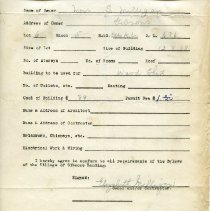 Name of Owner Mrs. G. Milligan
Address of Owner Gibsons
Lot 6 Block 5 D. L. 686
Size of Lot Size of Building 12 x 28
No. of Stories No. of Rooms Roof
Building to be used for Wood Shed
No. of Toilets, etc. Heating
Cost of Building $ Permit Fee $1.
Name & Address of Architect
Name & Address of Contractor
Basement, Chimneys, etc.
Electrical Work & Wiring
I hereby agree to conform to all requirements of the Bylaws
of the Village of Gibsons Landing.
Signed: